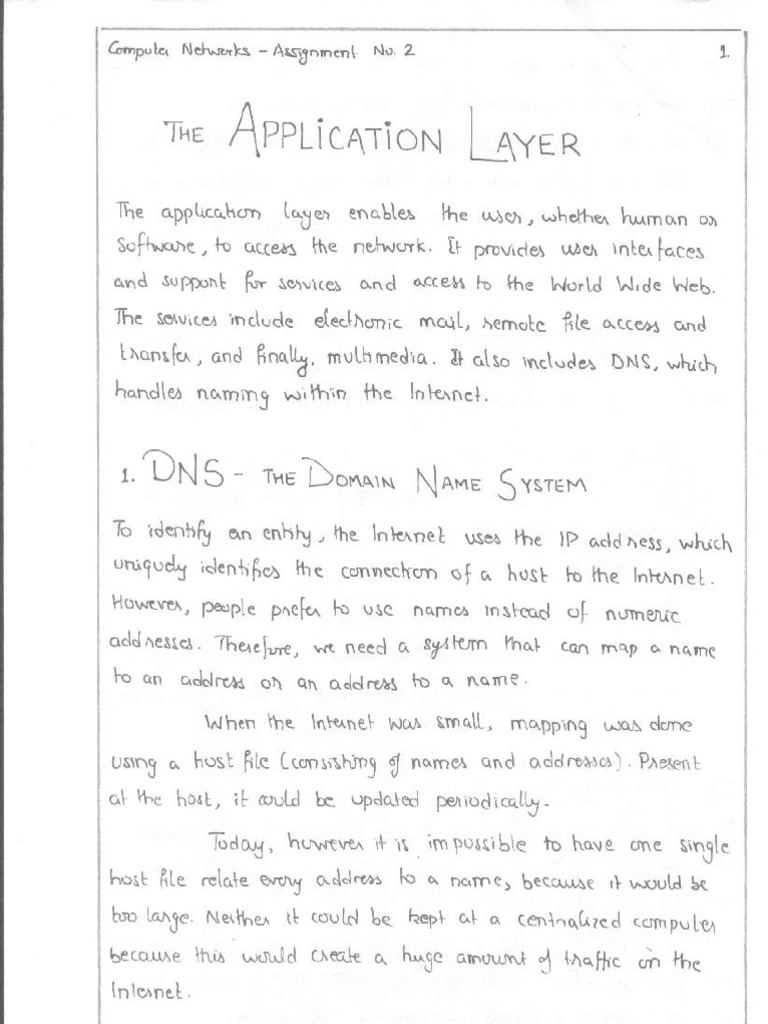 Computer Networks - Assignment No. 2
1.
THE APPLICATION LAYER
The application layer enables the user, whether human or
software, to access the network. It provides user interfaces
and support for services and access to the World Wide Web.
The services include electronic mail, remote file access and
transfer, and finally, multimedia. It also includes DNS, which
handles naming within the Internet.
1. DNS - THE DOMAIN NAME SYSTEM
To identify an entity, the Internet uses the IP address, which
uniquely identifies the connection of a host to the Internet.
However, people prefer to use names instead of numeric
addresses. Therefore, we need a system that can map a name
to an address or an address to a name.
When the Internet was small, mapping was done
using a host file (consisting of names and addresses). Present
at the host, it could be updated periodically.
Today, however it is impossible to have one single
host file relate every address to a name, because it would be
too large. Neither it could be kept at a centralized computer
because this would create a huge amount of traffic on the
Internet.